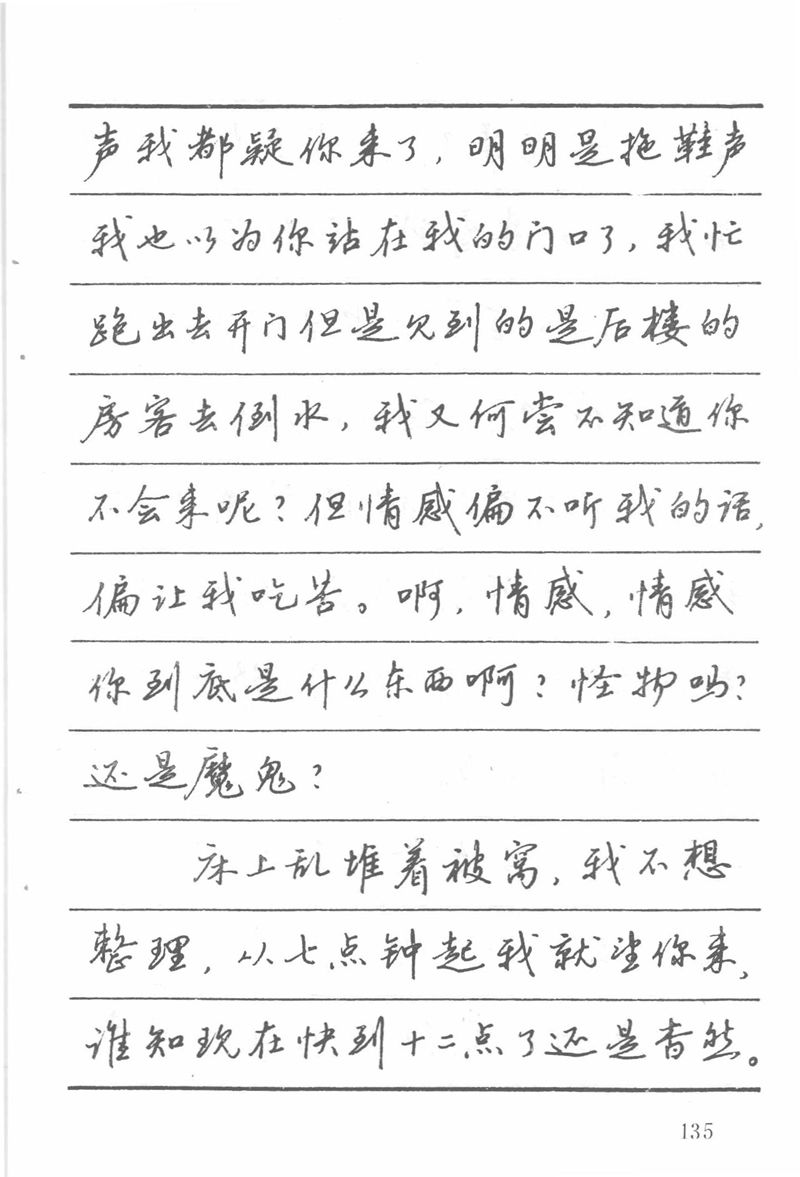 声我都疑你来了，明明是拖鞋声
我也以为你站在我的门口了，我忙
跑出去开门但是见到的是后楼的
房客去倒水，我又何尝不知道你
不会来呢？但情感偏不听我的话，
偏让我吃苦。啊，情感，情感
你到底是什么东西啊？怪物吗？
还是魔鬼？
床上乱堆着被窝，我不想
整理，从七点钟起我就望你来，
谁知现在快到十二点了还是杳然。
135